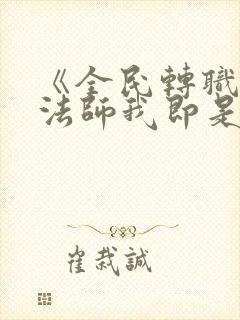 《全民轉職
法師我即是
崔裁誠